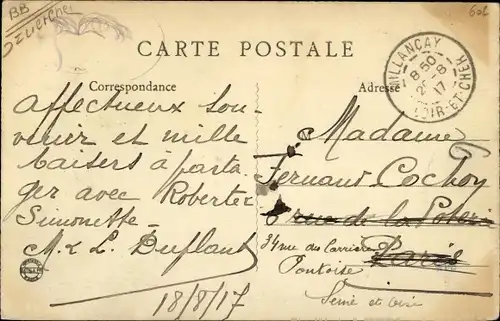 BB
602
CARTE POSTALE
MILLANÇAY
8 50
2 -8
17
LOIR-ET-CHER
Correspondance
Adresse
Affectueux Sou-
venir et mille
baisers à parta-
ger avec Robert et
Simonette -
M. & L. Duflant
18/8/17
Madame
Fernand Cochoy
rue de la
Paris
34 rue du
Pontoise
Seine et Oise